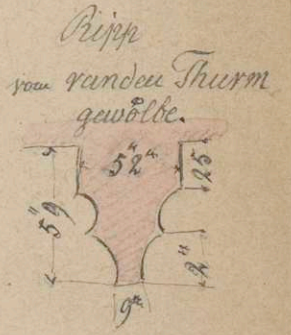 Ripp
vom runden Thurm
gewölbe.
52"
25
59"
2"
9"